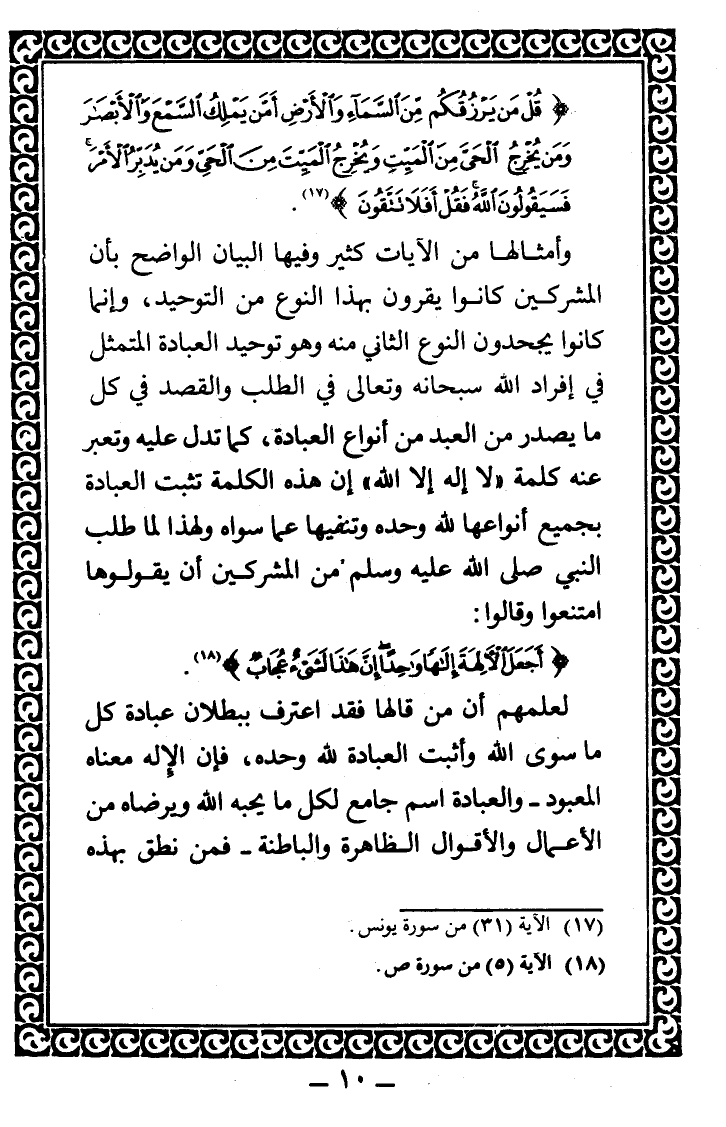 ﴿ قُلْ مَن يَرْزُقُكُم مِّنَ ٱلسَّمَآءِ وَٱلْأَرْضِ أَمَّن يَمْلِكُ ٱلسَّمْعَ وَٱلْأَبْصَٰرَ
وَمَن يُخْرِجُ ٱلْحَىَّ مِنَ ٱلْمَيِّتِ وَيُخْرِجُ ٱلْمَيِّتَ مِنَ ٱلْحَىِّ وَمَن يُدَبِّرُ ٱلْأَمْرَۚ
فَسَيَقُولُونَ ٱللَّهُۚ فَقُلْ أَفَلَا تَتَّقُونَ ﴾(١٧) .
وأمثالها من الآيات كثير وفيها البيان الواضح بأن
المشركين كانوا يقرون بهذا النوع من التوحيد، وإنما
كانوا يجحدون النوع الثاني منه وهو توحيد العبادة المتمثل
في إفراد الله سبحانه وتعالى في الطلب والقصد في كل
ما يصدر من العبد من أنواع العبادة، كما تدل عليه وتعبر
عنه كلمة «لا إله إلا الله» إن هذه الكلمة تثبت العبادة
بجميع أنواعها لله وحده وتنفيها عما سواه ولهذا لما طلب
النبي صلى الله عليه وسلم من المشركين أن يقولوها
امتنعوا وقالوا:
﴿ أَجَعَلَ ٱلْأَلِهَةَ إِلَٰهًا وَٰحِدًاۖ إِنَّ هَٰذَا لَشَىْءٌ عُجَابٌ ﴾(١٨) .
لعلمهم أن من قالها فقد اعترف ببطلان عبادة كل
ما سوى الله وأثبت العبادة لله وحده، فإن الإِله معناه
المعبود ـ والعبادة اسم جامع لكل ما يحبه الله ويرضاه من
الأعمال والأقوال الظاهرة والباطنة ـ فمن نطق بهذه
(١٧) الآية (٣١) من سورة يونس.
(١٨) الآية (٥) من سورة ص.
ـ ١٠ ـ